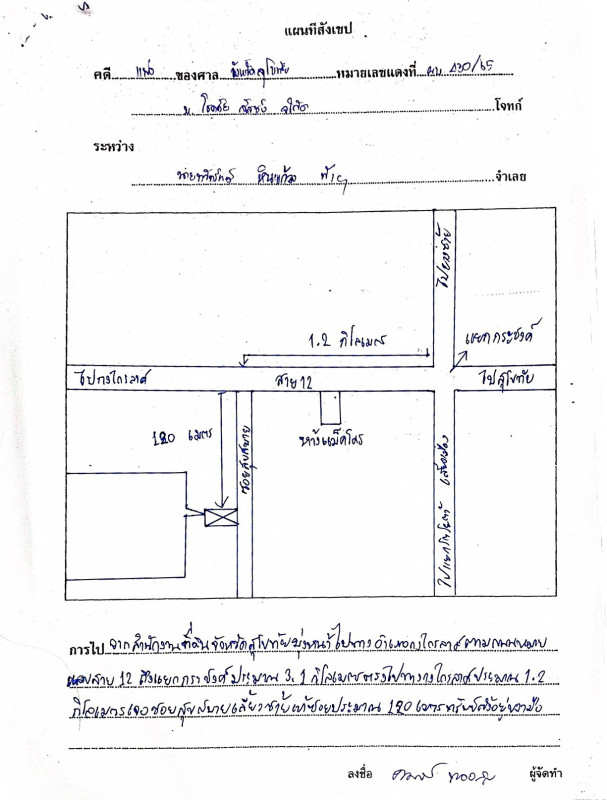 แผนที่สังเขป
คดี แพ่ง ของศาล จังหวัดสุโขทัย หมายเลขแดงที่ ผบ 430/65
โจทก์
ระหว่าง
จำเลย
1.2 กิโลเมตร
แยกกระชงค์
ไปกงไกรลาศ
สาย 12
ไปสุโขทัย
120 เมตร
ซอยสุขสบาย
ห้างแม็คโคร
การไป จากสำนักงานที่ดินจังหวัดสุโขทัยมุ่งหน้าไปทางอำเภอกงไกรลาศตามถนนหมาย
เลขสาย 12 ถึงแยกกระชงค์ประมาณ 3.1 กิโลเมตรตรงไปทางกงไกรลาศประมาณ 1.2
กิโลเมตรเจอซอยสุขสบายเลี้ยวซ้ายเข้าซอยประมาณ 120 เมตรทรัพย์ตั้งอยู่ขวามือ
ลงชื่อ ผู้จัดทำ